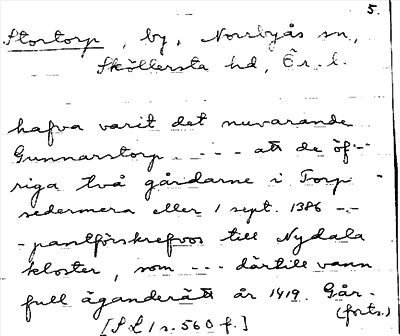 5.
Stortorp, by, Norrbyås sn,
Sköllersta hd, Ör. l.
hafva varit det nuvarande
Gunnarstorp. - - - att de öf-
riga två gårdarne i Torp -
sedermera eller 1 sept. 1386 - -
- pantförskrefvos till Nydala
kloster, som - - - därtill vann
full äganderätt år 1419. Går-
(forts.)
[S L 1 s. 560 f.]